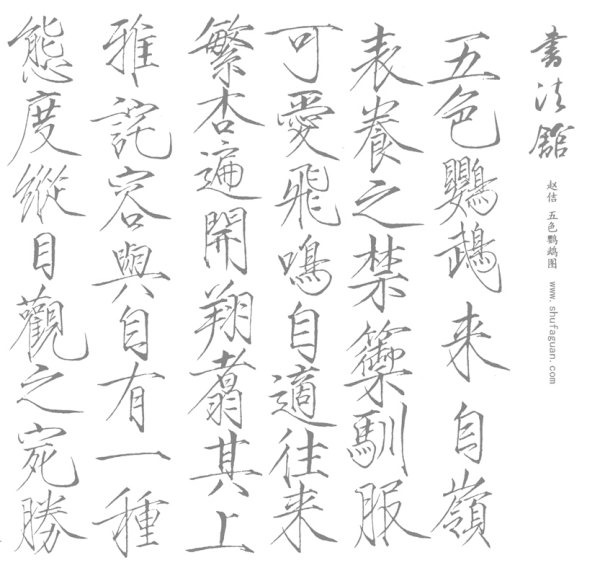 书法館
赵佶 五色鹦鹉图 www.shufaguan.com
五色鸚鵡来自嶺
表養之禁籞馴服
可愛飛鳴自適徃来
繁杏遍開翔翥其上
雅詫容與自有一種
態度縱目觀之宛勝